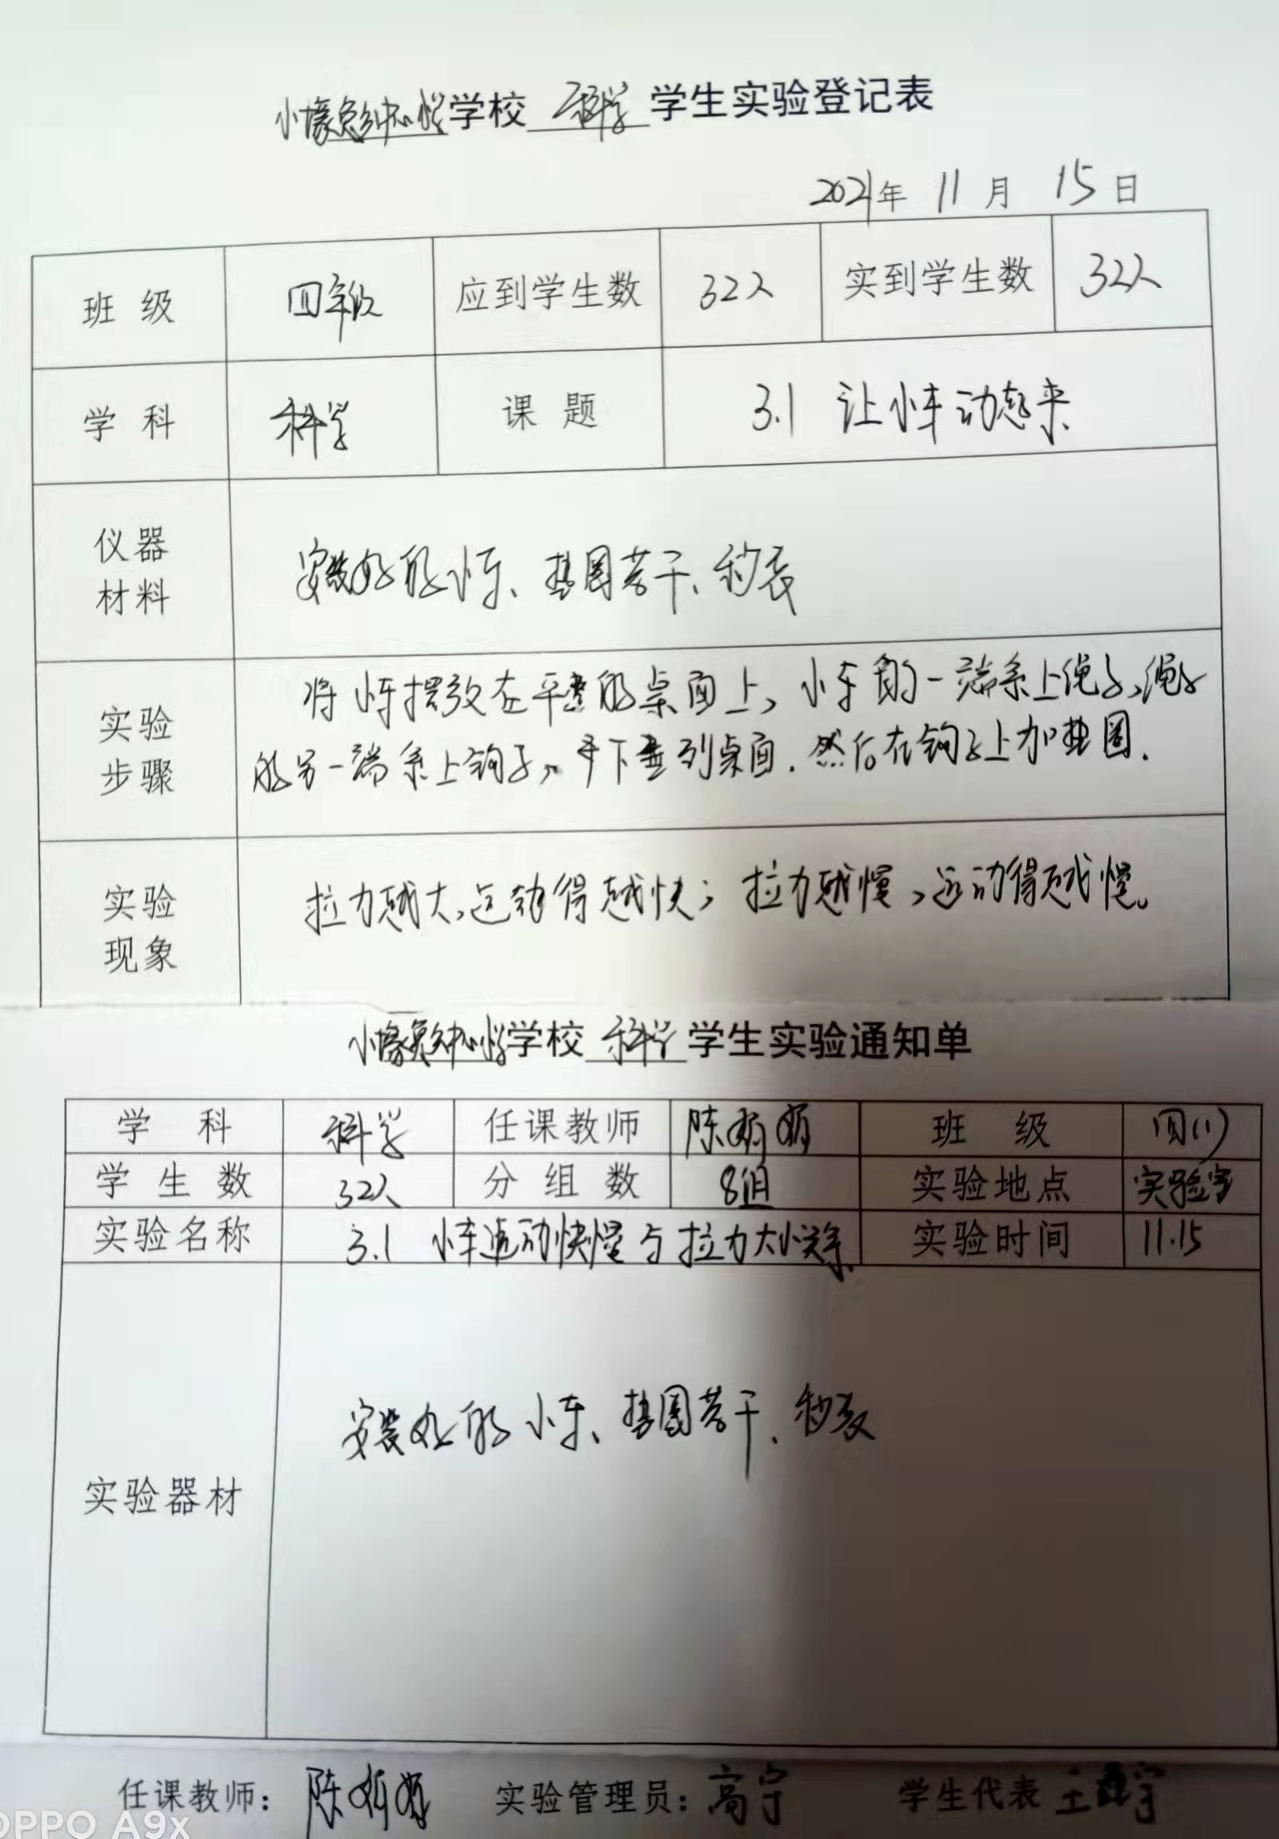 小壕兔中心小学学校 科学 学生实验登记表
2021年 11月 15日
班级 四年级 应到学生数 32人 实到学生数 32人
学科 科学 课题 3.1 让小车动起来
仪器
材料
安装好的小车、垫圈若干、秒表
实验
步骤
将小车摆放在平整的桌面上，小车的一端系上绳子，绳子
的另一端系上钩子，并下垂到桌面．然后在钩子上加垫圈．
实验
现象
拉力越大，运动得越快；拉力越慢，运动得越慢。
小壕兔中心小学学校 科学 学生实验通知单
学科 科学 任课教师 陈娇娇 班级 四(1)
学生数 32人 分组数 8组 实验地点 实验室
实验名称 3.1 小车运动快慢与拉力大小关系 实验时间 11.15
实验器材 安装好的小车、垫圈若干、秒表
任课教师：陈娇娇 实验管理员：高宁 学生代表
OPPO A9x